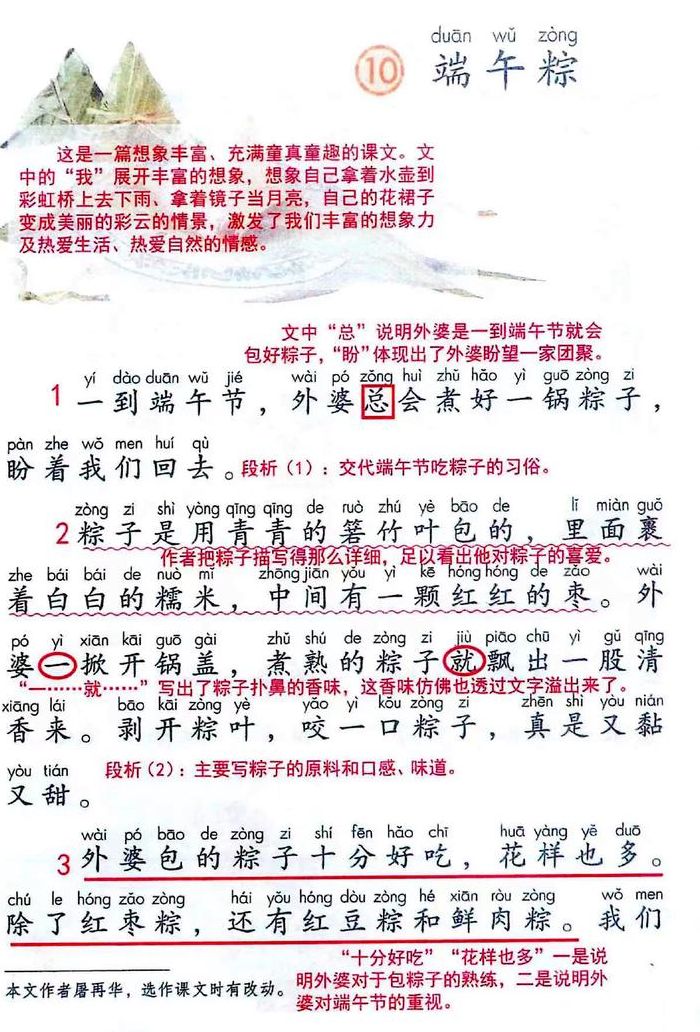 duān wǔ zòng
⑩ 端午粽
这是一篇想象丰富、充满童真童趣的课文。文
中的“我”展开丰富的想象，想象自己拿着水壶到
彩虹桥上去下雨、拿着镜子当月亮，自己的花裙子
变成美丽的彩云的情景，激发了我们丰富的想象力
及热爱生活、热爱自然的情感。
文中“总”说明外婆是一到端午节就会
包好粽子，“盼”体现出了外婆盼望一家团聚。
yí dào duān wǔ jié wài pó zǒng huì zhǔ hǎo yì guō zòng zi
1 一到端午节，外婆总会煮好一锅粽子，
pàn zhe wǒ men huí qù
盼着我们回去。段析（1）：交代端午节吃粽子的习俗。
zòng zi shì yòng qīng qīng de ruò zhú yè bāo de lǐ miàn guǒ
2 粽子是用青青的箬竹叶包的，里面裹
作者把粽子描写得那么详细，足以看出他对粽子的喜爱。
zhe bái bái de nuò mǐ zhōng jiān yǒu yì kē hóng hóng de zǎo wài
着白白的糯米，中间有一颗红红的枣。外
pó yì xiān kāi guō gài zhǔ shú de zòng zi jiù piāo chū yì gǔ qīng
婆一掀开锅盖，煮熟的粽子就飘出一股清
“一……就……”写出了粽子扑鼻的香味，这香味仿佛也透过文字溢出来了。
xiāng lái bāo kāi zòng yè yǎo yì kǒu zòng zi zhēn shì yòu nián
香来。剥开粽叶，咬一口粽子，真是又黏
yòu tián
又甜。段析（2）：主要写粽子的原料和口感、味道。
wài pó bāo de zòng zi shí fēn hǎo chī huā yàng yě duō
3 外婆包的粽子十分好吃，花样也多。
chú le hóng zǎo zòng hái yǒu hóng dòu zòng hé xiān ròu zòng wǒ men
除了红枣粽，还有红豆粽和鲜肉粽。我们
“十分好吃”“花样也多”一是说
明外婆对于包粽子的熟练，二是说明外
婆对端午节的重视。
本文作者屠再华，选作课文时有改动。